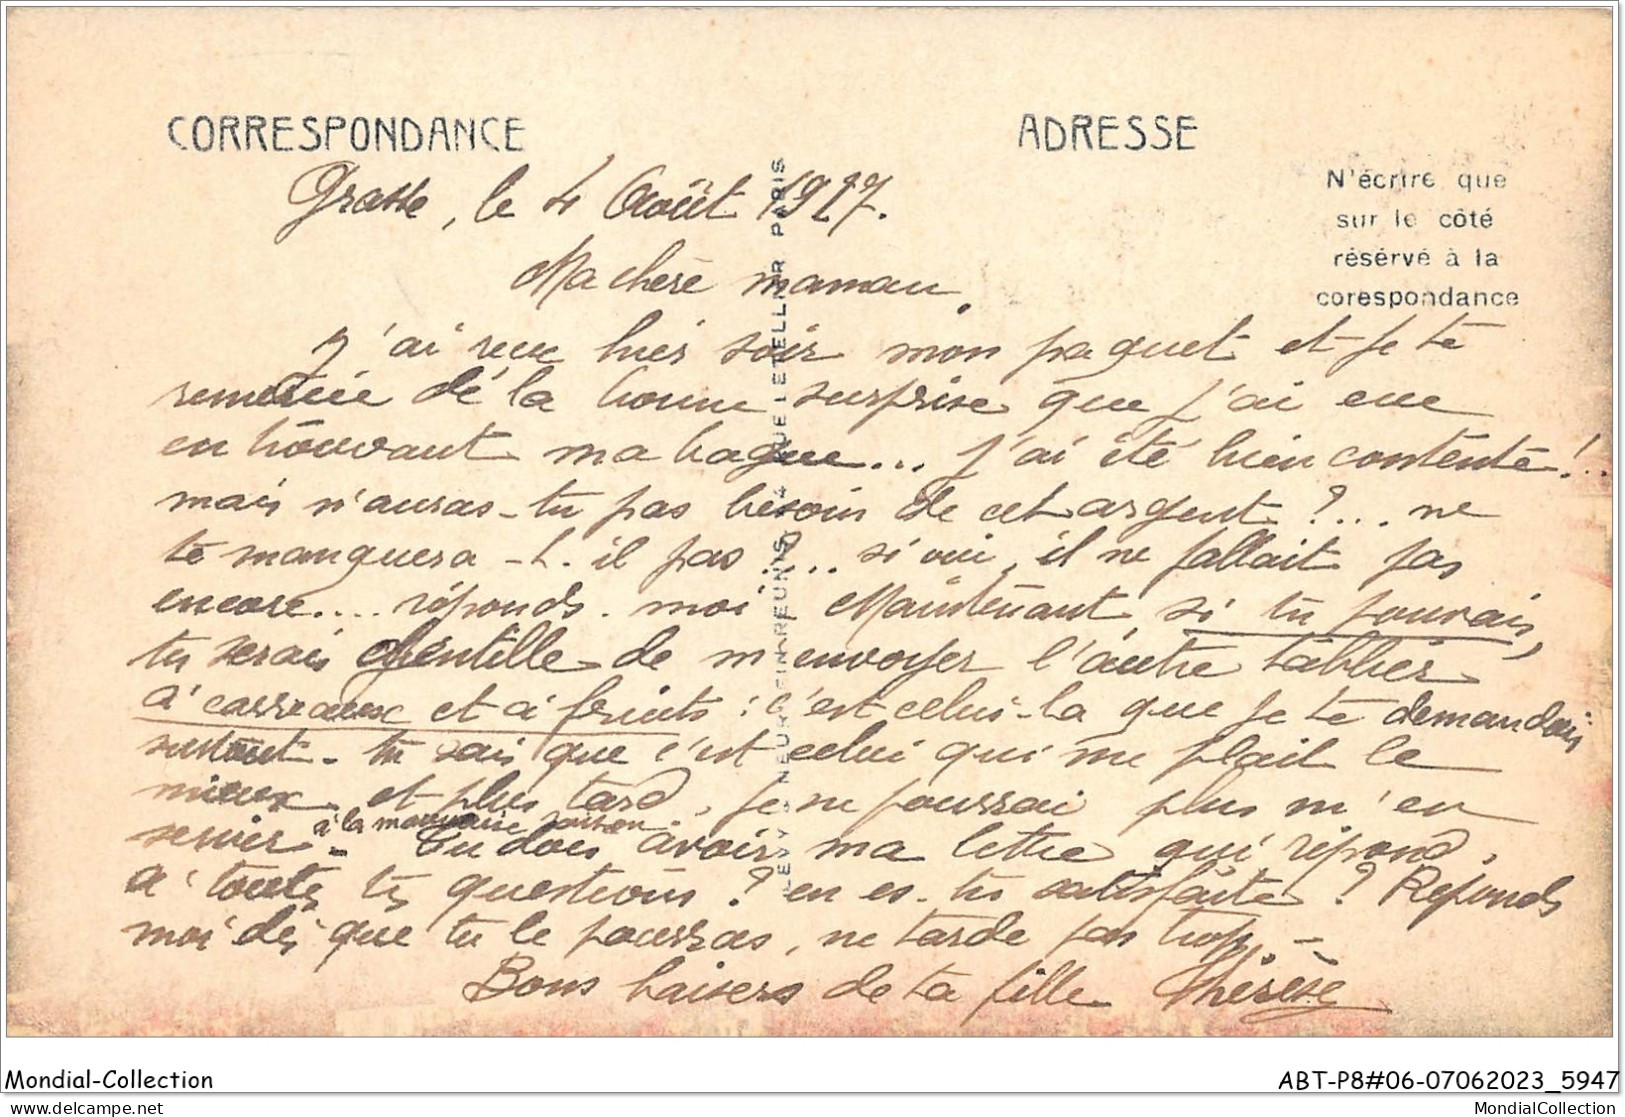 CORRESPONDANCE
ADRESSE
N'écrire que
sur le côté
résérvé à la
corespondance
Grasse, le 4 Août 1927.
Ma chère maman.
J'ai reçu hier soir mon paquet et je te
remercie de la bonne surprise que j'ai eue
en trouvant ma bague... j'ai été bien contente!..
mais n'auras-tu pas besoin de cet argent?... ne
te manquera-t-il pas?... si oui, il ne fallait pas
encore.... réponds-moi Maintenant, si tu pouvais,
tu serais Gentille de m'envoyer l'autre tablier
à carreaux et à fruits : c'est celui-là que je te demandais
surtout - tu sais que c'est celui qui me plait le
mieux et plus tard, je ne pourrai plus m'en
servir à la mauvaise saison. - Tu dois avoir ma lettre qui répond
à toutes tes questions? en es-tu satisfaite? Réponds
moi dès que tu le pourras, ne tarde pas trop. -
Bons baisers de ta fille Thérèse
LEVY & NEURDEIN REUNIS, 44 RUE LETELLIER PARIS
Mondial-Collection
ABT-P8#06-07062023_5947
www.delcampe.net
MondialCollection